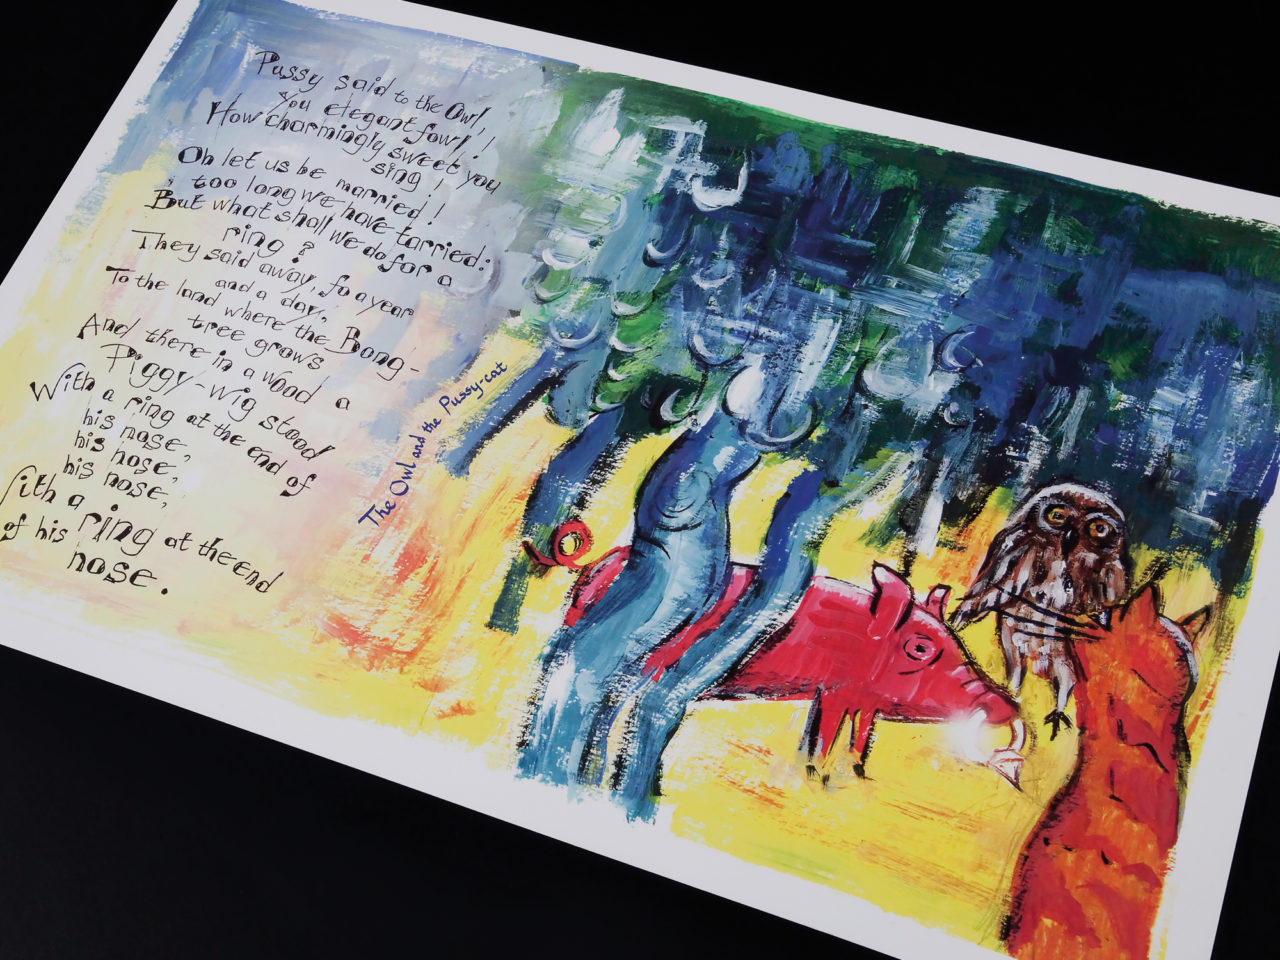 Pussy said to the Owl,
You elegant fowl!
How charmingly sweet you
sing!
Oh let us be married!
too long we have tarried:
But what shall we do for a
ring?
They said away, fo a year
and a day,
To the land where the Bong-
tree grows
And there in a wood a
Piggy-wig stood
With a ring at the end of
his nose,
his nose,
his nose,
With a ring at the end
of his nose.
The Owl and the Pussy-cat